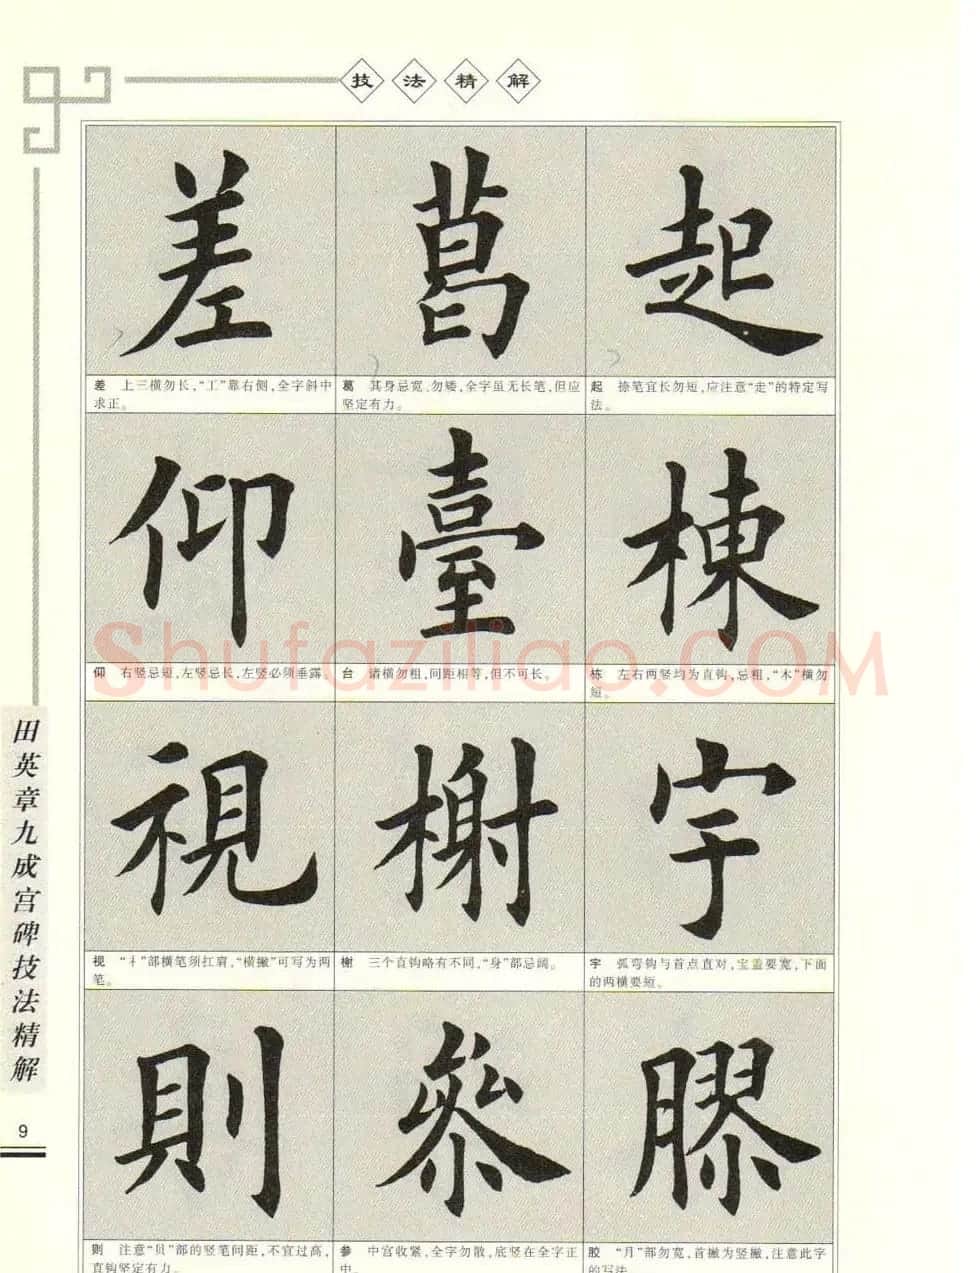 技法精解
差 葛 起
差　上三横勿长，“工”靠右侧，全字斜中
求正。
葛　其身忌宽、勿矮，全字虽无长笔，但应
坚定有力。
起　捺笔宜长勿短，应注意“走”的特定写
法。
仰 臺 棟
仰　右竖忌短，左竖忌长，左竖必须垂露
台　诸横勿粗，间距相等，但不可长。
栋　左右两竖均为直钩，忌粗，“木”横勿
短。
Shufaziliao.COM
視 榭 宇
视　“礻”部横笔须扛肩，“横撇”可写为两
笔。
榭　三个直钩略有不同，“身”部忌阔。
宇　弧弯钩与首点直对，宝盖要宽，下面
的两横要短。
則 叅 膠
则　注意“贝”部的竖笔间距，不宜过高，
直钩坚定有力。
参　中宫收紧，全字勿散，底竖在全字正
中。
胶　“月”部勿宽，首撇为竖撇，注意此字
的写法
田英章九成宫碑技法精解
9